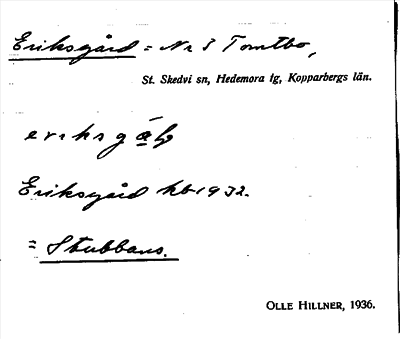 Eriksgård = Nr 3 Tomtbo,
St. Skedvi sn, Hedemora tg, Kopparbergs län.
Eriksgård kb 1932.
= Stubbans.
OLLE HILLNER, 1936.